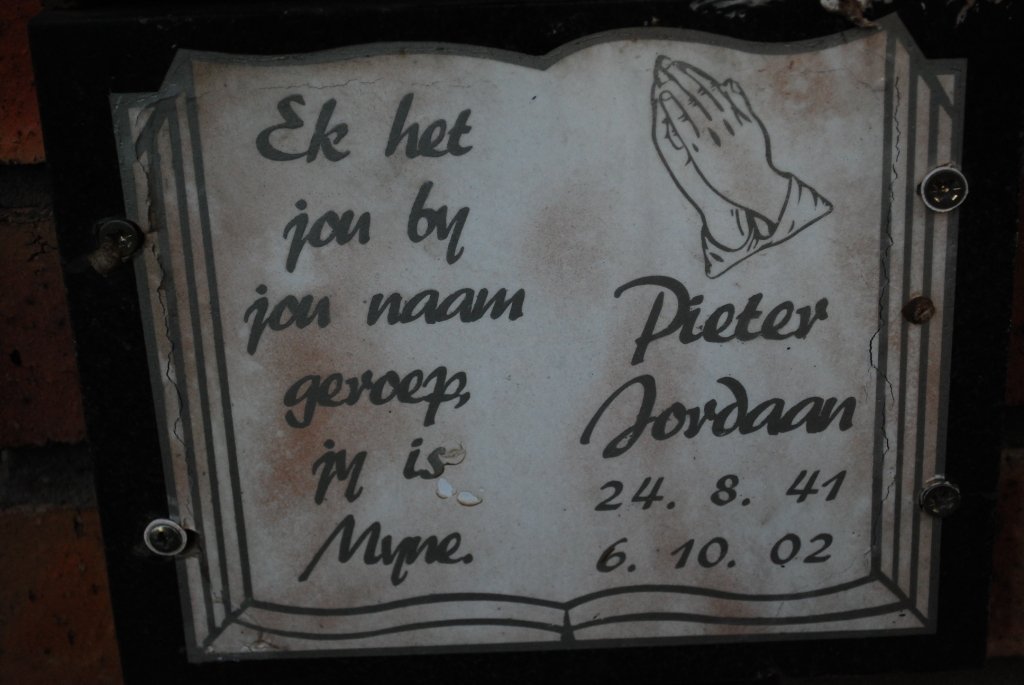 Ek het
jou by
jou naam
geroep,
jy is
Myne.
Pieter
Jordaan
24. 8. 41
6. 10. 02